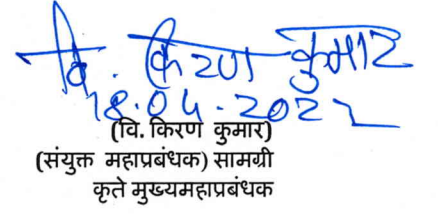 वि. किरण कुमार
18.04.2022
(वि. किरण कुमार)
(संयुक्त महाप्रबंधक) सामग्री
कृते मुख्यमहाप्रबंधक